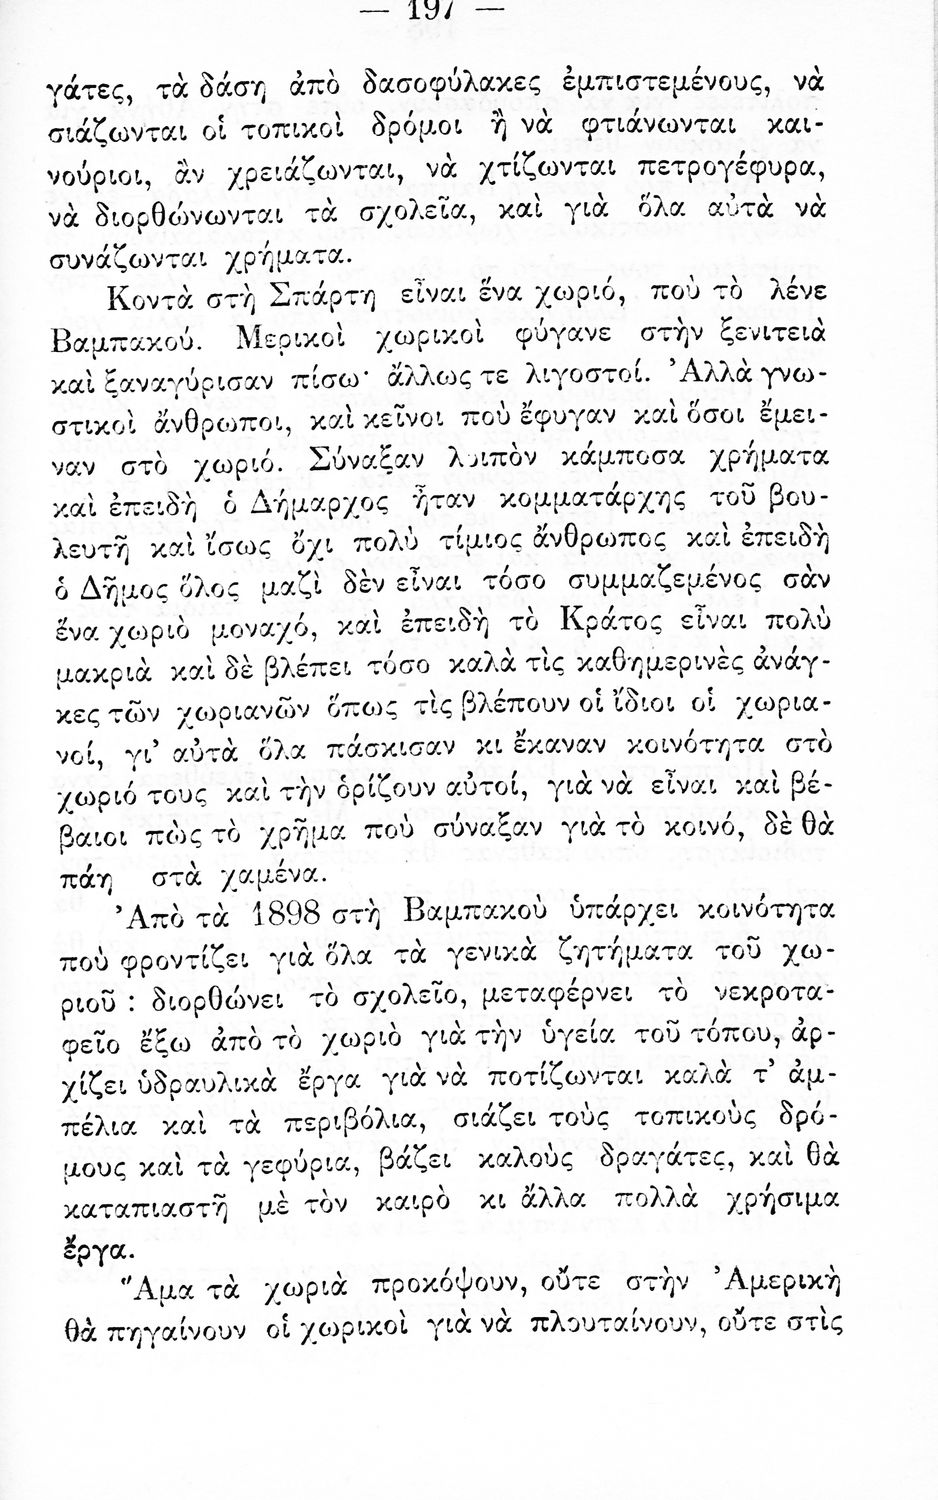 — 197 —
γάτες, τὰ δάση ἀπὸ δασοφύλακες ἐμπιστεμένους, νὰ
σιάζωνται οἱ τοπικοὶ δρόμοι ἢ νὰ φτιάνωνται και-
νούριοι, ἂν χρειάζωνται, νὰ χτίζωνται πετρογέφυρα,
νὰ διορθώνωνται τὰ σχολεῖα, καὶ γιὰ ὅλα αὐτὰ νὰ
συνάζωνται χρήματα.
Κοντὰ στὴ Σπάρτη εἶναι ἕνα χωριό, ποὺ τὸ λένε
Βαμπακού. Μερικοὶ χωρικοὶ φύγανε στὴν ξενιτειὰ
καὶ ξαναγύρισαν πίσω· ἄλλως τε λιγοστοί. Ἀλλὰ γνω-
στικοὶ ἄνθρωποι, καὶ κεῖνοι ποὺ ἔφυγαν καὶ ὅσοι ἔμει-
ναν στὸ χωριό. Σύναξαν λοιπὸν κάμποσα χρήματα
καὶ ἐπειδὴ ὁ Δήμαρχος ἦταν κομματάρχης τοῦ βου-
λευτῆ καὶ ἴσως ὄχι πολὺ τίμιος ἄνθρωπος καὶ ἐπειδὴ
ὁ Δῆμος ὅλος μαζὶ δὲν εἶναι τόσο συμμαζεμένος σὰν
ἕνα χωριὸ μοναχό, καὶ ἐπειδὴ τὸ Κράτος εἶναι πολὺ
μακριὰ καὶ δὲ βλέπει τόσο καλὰ τὶς καθημερινὲς ἀνάγ-
κες τῶν χωριανῶν ὅπως τὶς βλέπουν οἱ ἴδιοι οἱ χωρια-
νοί, γι’ αὐτὰ ὅλα πάσκισαν κι ἔκαναν κοινότητα στὸ
χωριό τους καὶ τὴν ὁρίζουν αὐτοί, γιὰ νὰ εἶναι καὶ βέ-
βαιοι πὼς τὸ χρῆμα ποὺ σύναξαν γιὰ τὸ κοινό, δὲ θὰ
πάη στὰ χαμένα.
Ἀπὸ τὰ 1898 στὴ Βαμπακοὺ ὑπάρχει κοινότητα
ποὺ φροντίζει γιὰ ὅλα τὰ γενικὰ ζητήματα τοῦ χω-
ριοῦ : διορθώνει τὸ σχολεῖο, μεταφέρνει τὸ νεκροτα-
φεῖο ἔξω ἀπὸ τὸ χωριὸ γιὰ τὴν ὑγεία τοῦ τόπου, ἀρ-
χίζει ὑδραυλικὰ ἔργα γιὰ νὰ ποτίζωνται καλὰ τ’ ἀμ-
πέλια καὶ τὰ περιβόλια, σιάζει τοὺς τοπικοὺς δρό-
μους καὶ τὰ γεφύρια, βάζει καλοὺς δραγάτες, καὶ θὰ
καταπιαστῆ μὲ τὸν καιρὸ κι ἄλλα πολλὰ χρήσιμα
ἔργα.
Ἅμα τὰ χωριὰ προκόψουν, οὔτε στὴν Ἀμερικὴ
θὰ πηγαίνουν οἱ χωρικοὶ γιὰ νὰ πλουταίνουν, οὔτε στὶς